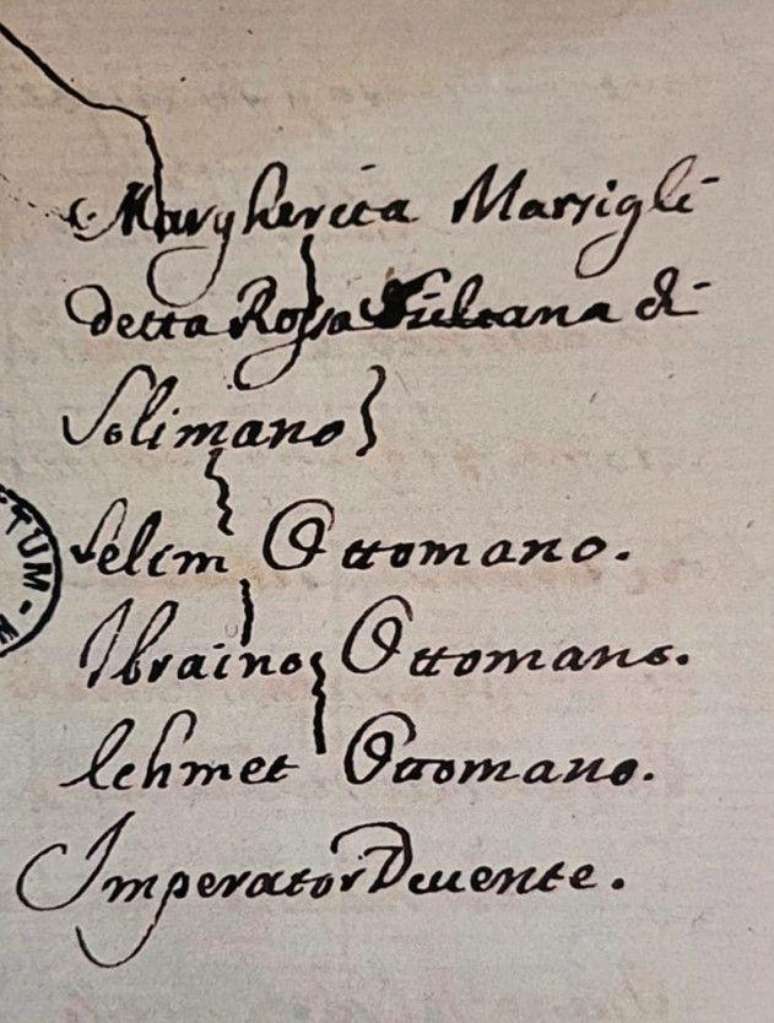 Margherita Marsigli
detta Rossa Sultana di
Solimano
Selim Ottomano.
Ibraino Ottomano.
Iehmet Ottomano.
Imperator Viuente.
TUM